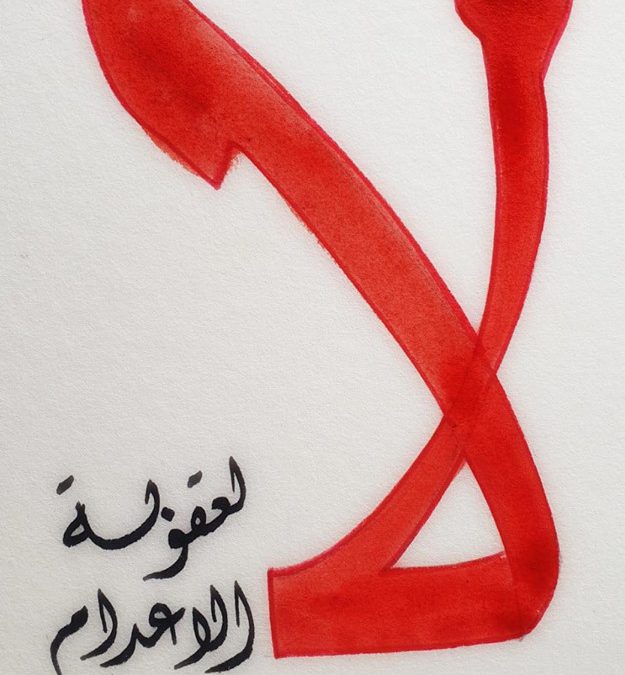 لا
لعقوبة
الاعدام